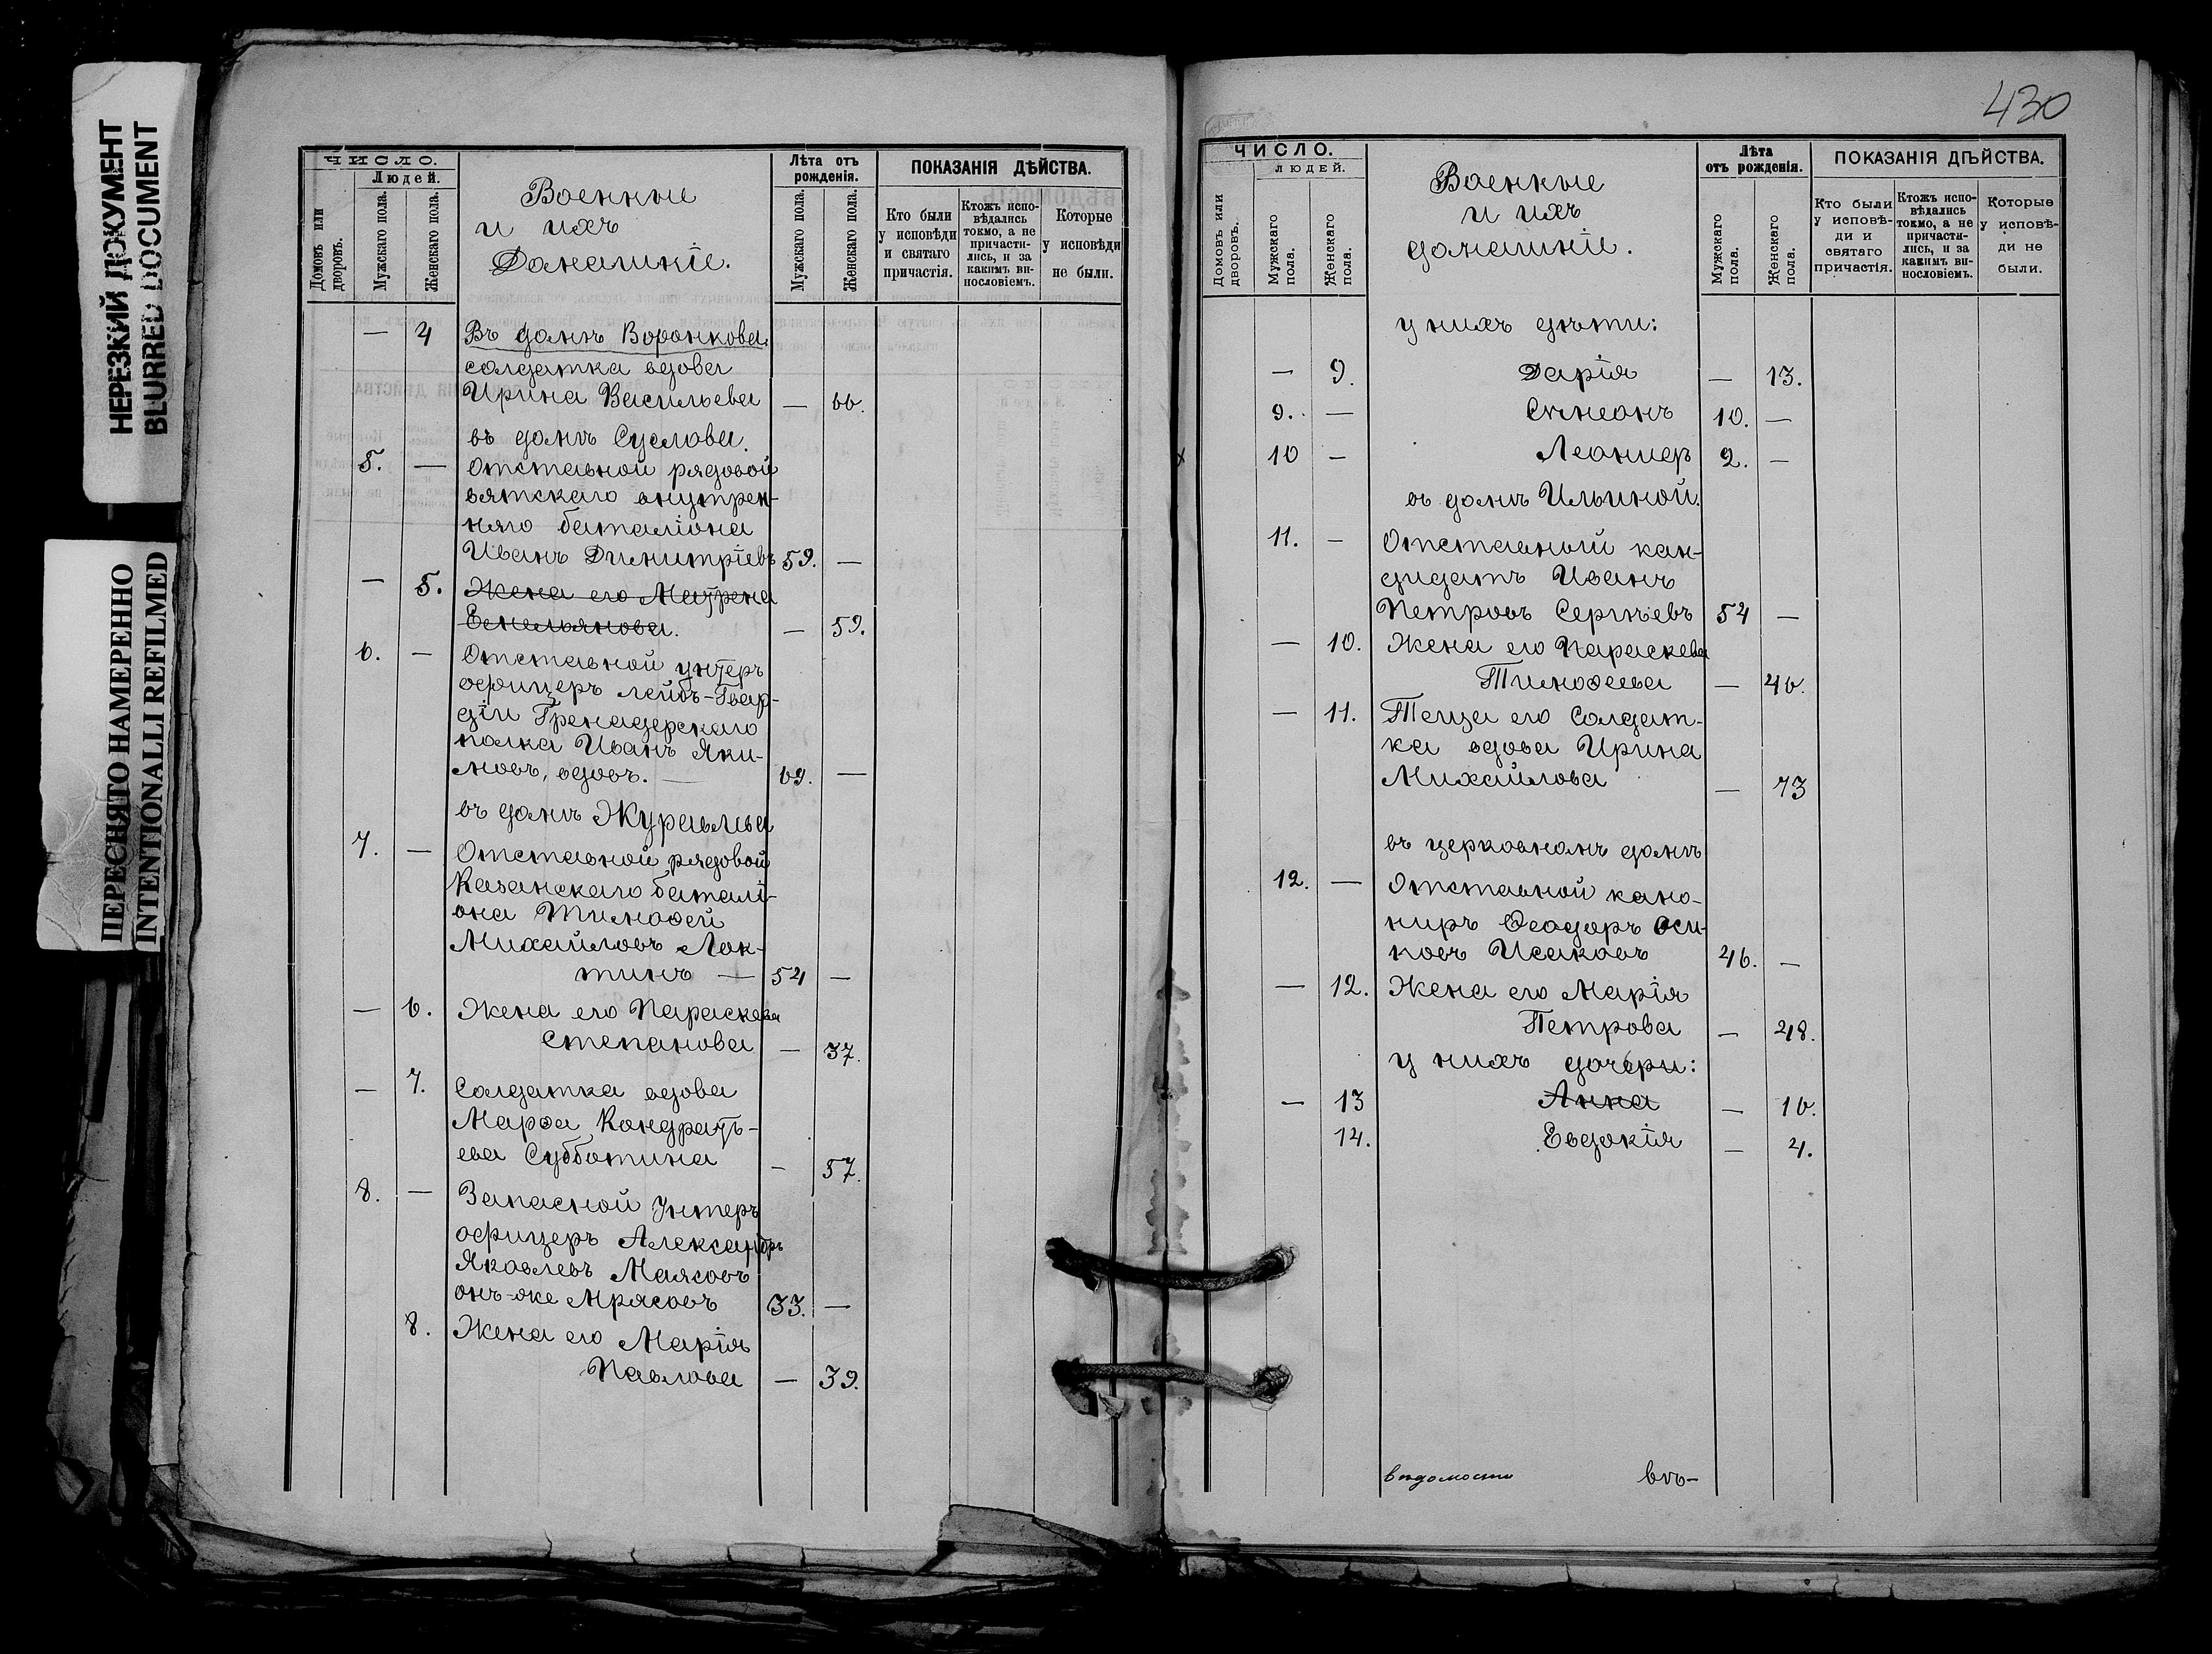 НЕРЕЗКИЙ ДОКУМЕНТ
BLURRED DOCUMENT
ПЕРЕСНЯТО НАМЕРЕННО
INTENTIONALLI REFILMED
ЧИСЛО.
Людей.
Домовъ или дворовъ.
Мужскаго пола.
Женскаго пола.
Военные
и ихъ
Домашніе.
Лѣта отъ рожденія.
Мужскаго пола.
Женскаго пола.
ПОКАЗАНІЯ ДѢЙСТВА.
Кто были у исповѣди и святаго причастія.
Ктожъ испо-вѣдались токмо, а не причасти-лись, и за какимъ ви-нословіемъ.
Которые у исповѣди не были.
— 4 Въ домѣ Воронкова.
солдатка вдова
Ирина Васильева — 66.
въ домѣ Суслова.
5. — Отставной рядовой
вятскаго внутрен-
няго баталіона
Иванъ Димитріевъ 59. —
— 5. Жена его Матрена
Емельянова. — 59.
6. — Отставной унтеръ
офицеръ лейбъ-Гвар-
діи Гренадерскаго
полка Иванъ Яки-
мовъ, вдовъ. — 69. —
въ домѣ Журавлева
7. — Отставной рядовой
Казанскаго баталі-
она Тимоѳей
Михайловъ Лок-
тинъ — 54 —
— 6. Жена его Параскева
Степанова — 37.
— 7. Солдатка вдова
Марѳа Кондрать-
ева Субботина — 57.
8. — Запасной Унтеръ
офицеръ Александръ
Яковлевъ Маясовъ
онъ-же Мрясовъ 33. —
8. Жена его Марія
Павлова — 39.
430
ЧИСЛО.
ЛЮДЕЙ.
Домовъ или дворовъ.
Мужскаго пола.
Женскаго пола.
Военные
и ихъ
домашніе.
Лѣта
отъ рожденія.
Мужскаго пола.
Женскаго пола.
ПОКАЗАНІЯ ДѢЙСТВА.
Кто были у исповѣ-ди и святаго причастія.
Ктожъ испо-вѣдались токмо, а не причасти-лись, и за какимъ ви-нословіемъ.
Которые у исповѣ-ди не были.
у нихъ дѣти:
— 9. Дарія — 13.
9. — Симеонъ 10. —
10 — Леонидъ 2. —
въ домѣ Ильиной.
11. — Отставной кан-
дидатъ Иванъ
Петровъ Сергѣевъ 54 —
— 10. Жена его Параскева
Тимоѳеева — 46.
— 11. Теща его Солдат-
ка вдова Ирина
Михайлова — 73
въ церковномъ домѣ
12. — Отставной кано-
ниръ Ѳеодоръ Оси-
повъ Исаковъ 46. —
— 12. Жена его Марія
Петрова — 48.
у нихъ дочери:
— 13 Анна — 16.
14. Евдокія — 4.
вѣдомости вѣ-